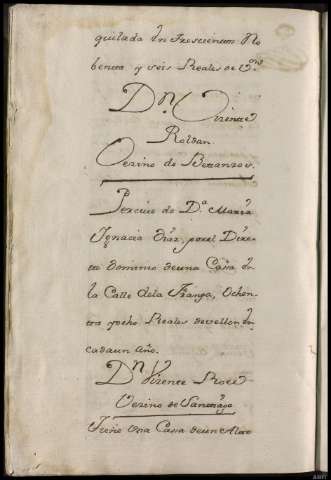 quilada en Trescientos No
benta y seis Reales de v.on
Dn. Vizente
Roldan
Vezino de Betanzos.
Percive de D.a Maria
Ignacia Diaz, por el Dire
cto dominio de una Casa en
la Calle de la Franja, Ochen
ta y ocho Reales de vellon en
cada un año.
Dn. Vizente
Vezino de Santiago
Tiene una Casa de un Alto